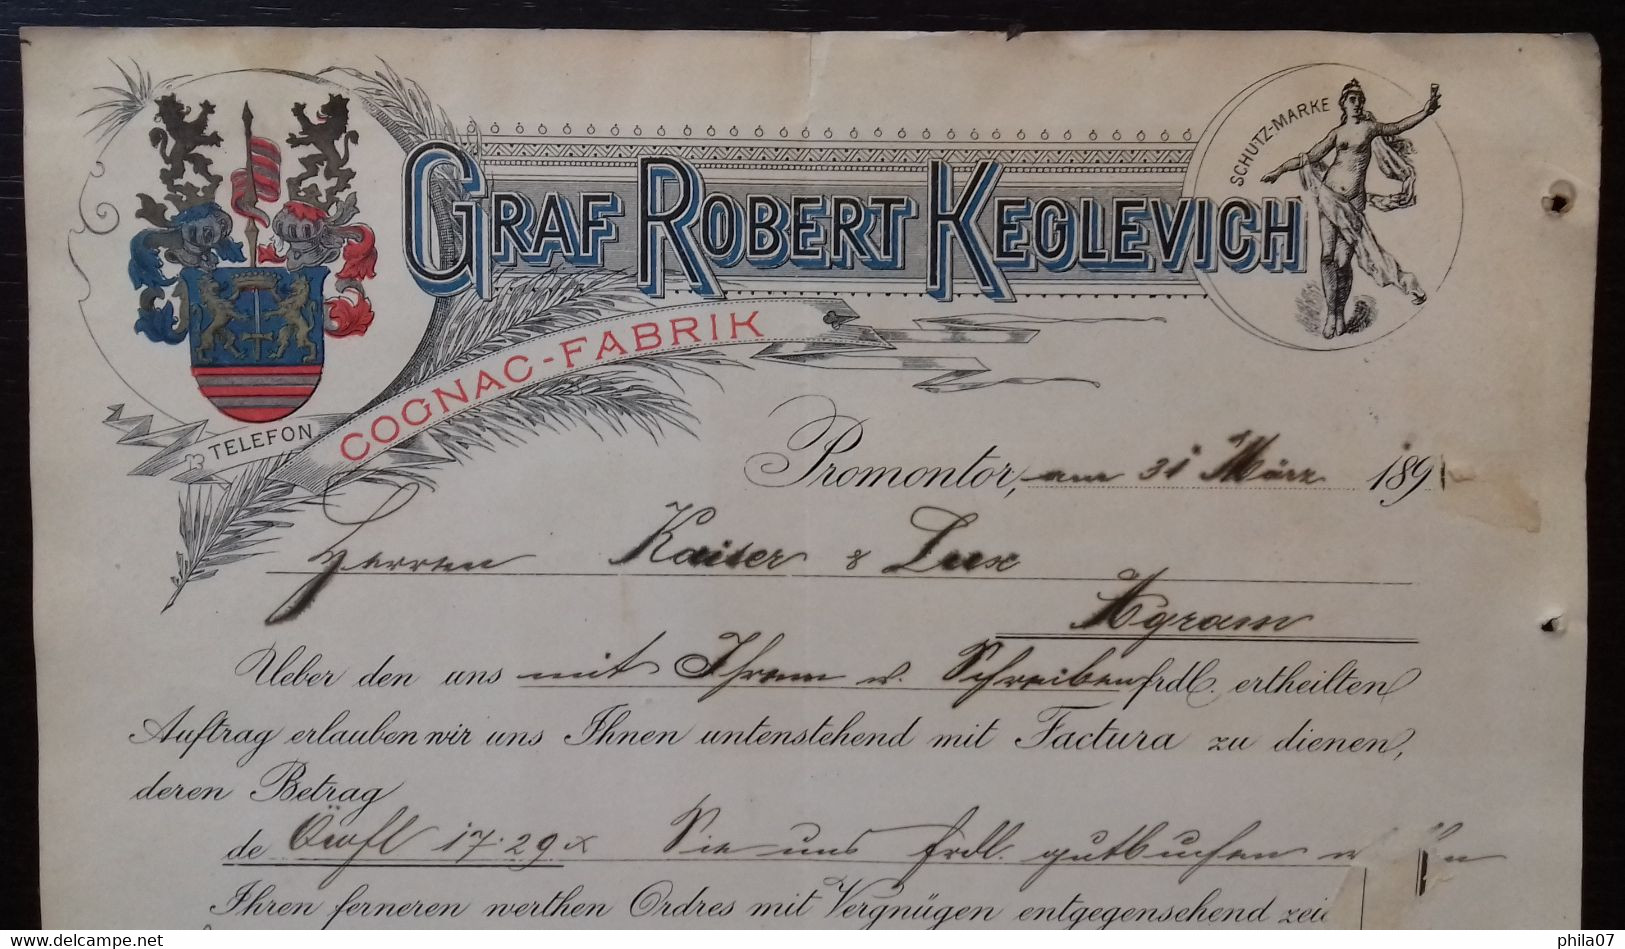 GRAF ROBERT KEGLEVICH
SCHUTZ-MARKE
COGNAC-FABRIK
TELEFON
Promontor, am 31 März 189
Herren Kaiser & Lux
Agram
Ueber den uns mit Ihrem w. Schreiben frdl. ertheilten
Auftrag erlauben wir uns Ihnen untenstehend mit Factura zu dienen,
deren Betrag
de Öwfl 17.29x Sie uns frdl. gutbuchen
Ihren ferneren werthen Ordres mit Vergnügen entgegensehend
delcampe.net
phila07